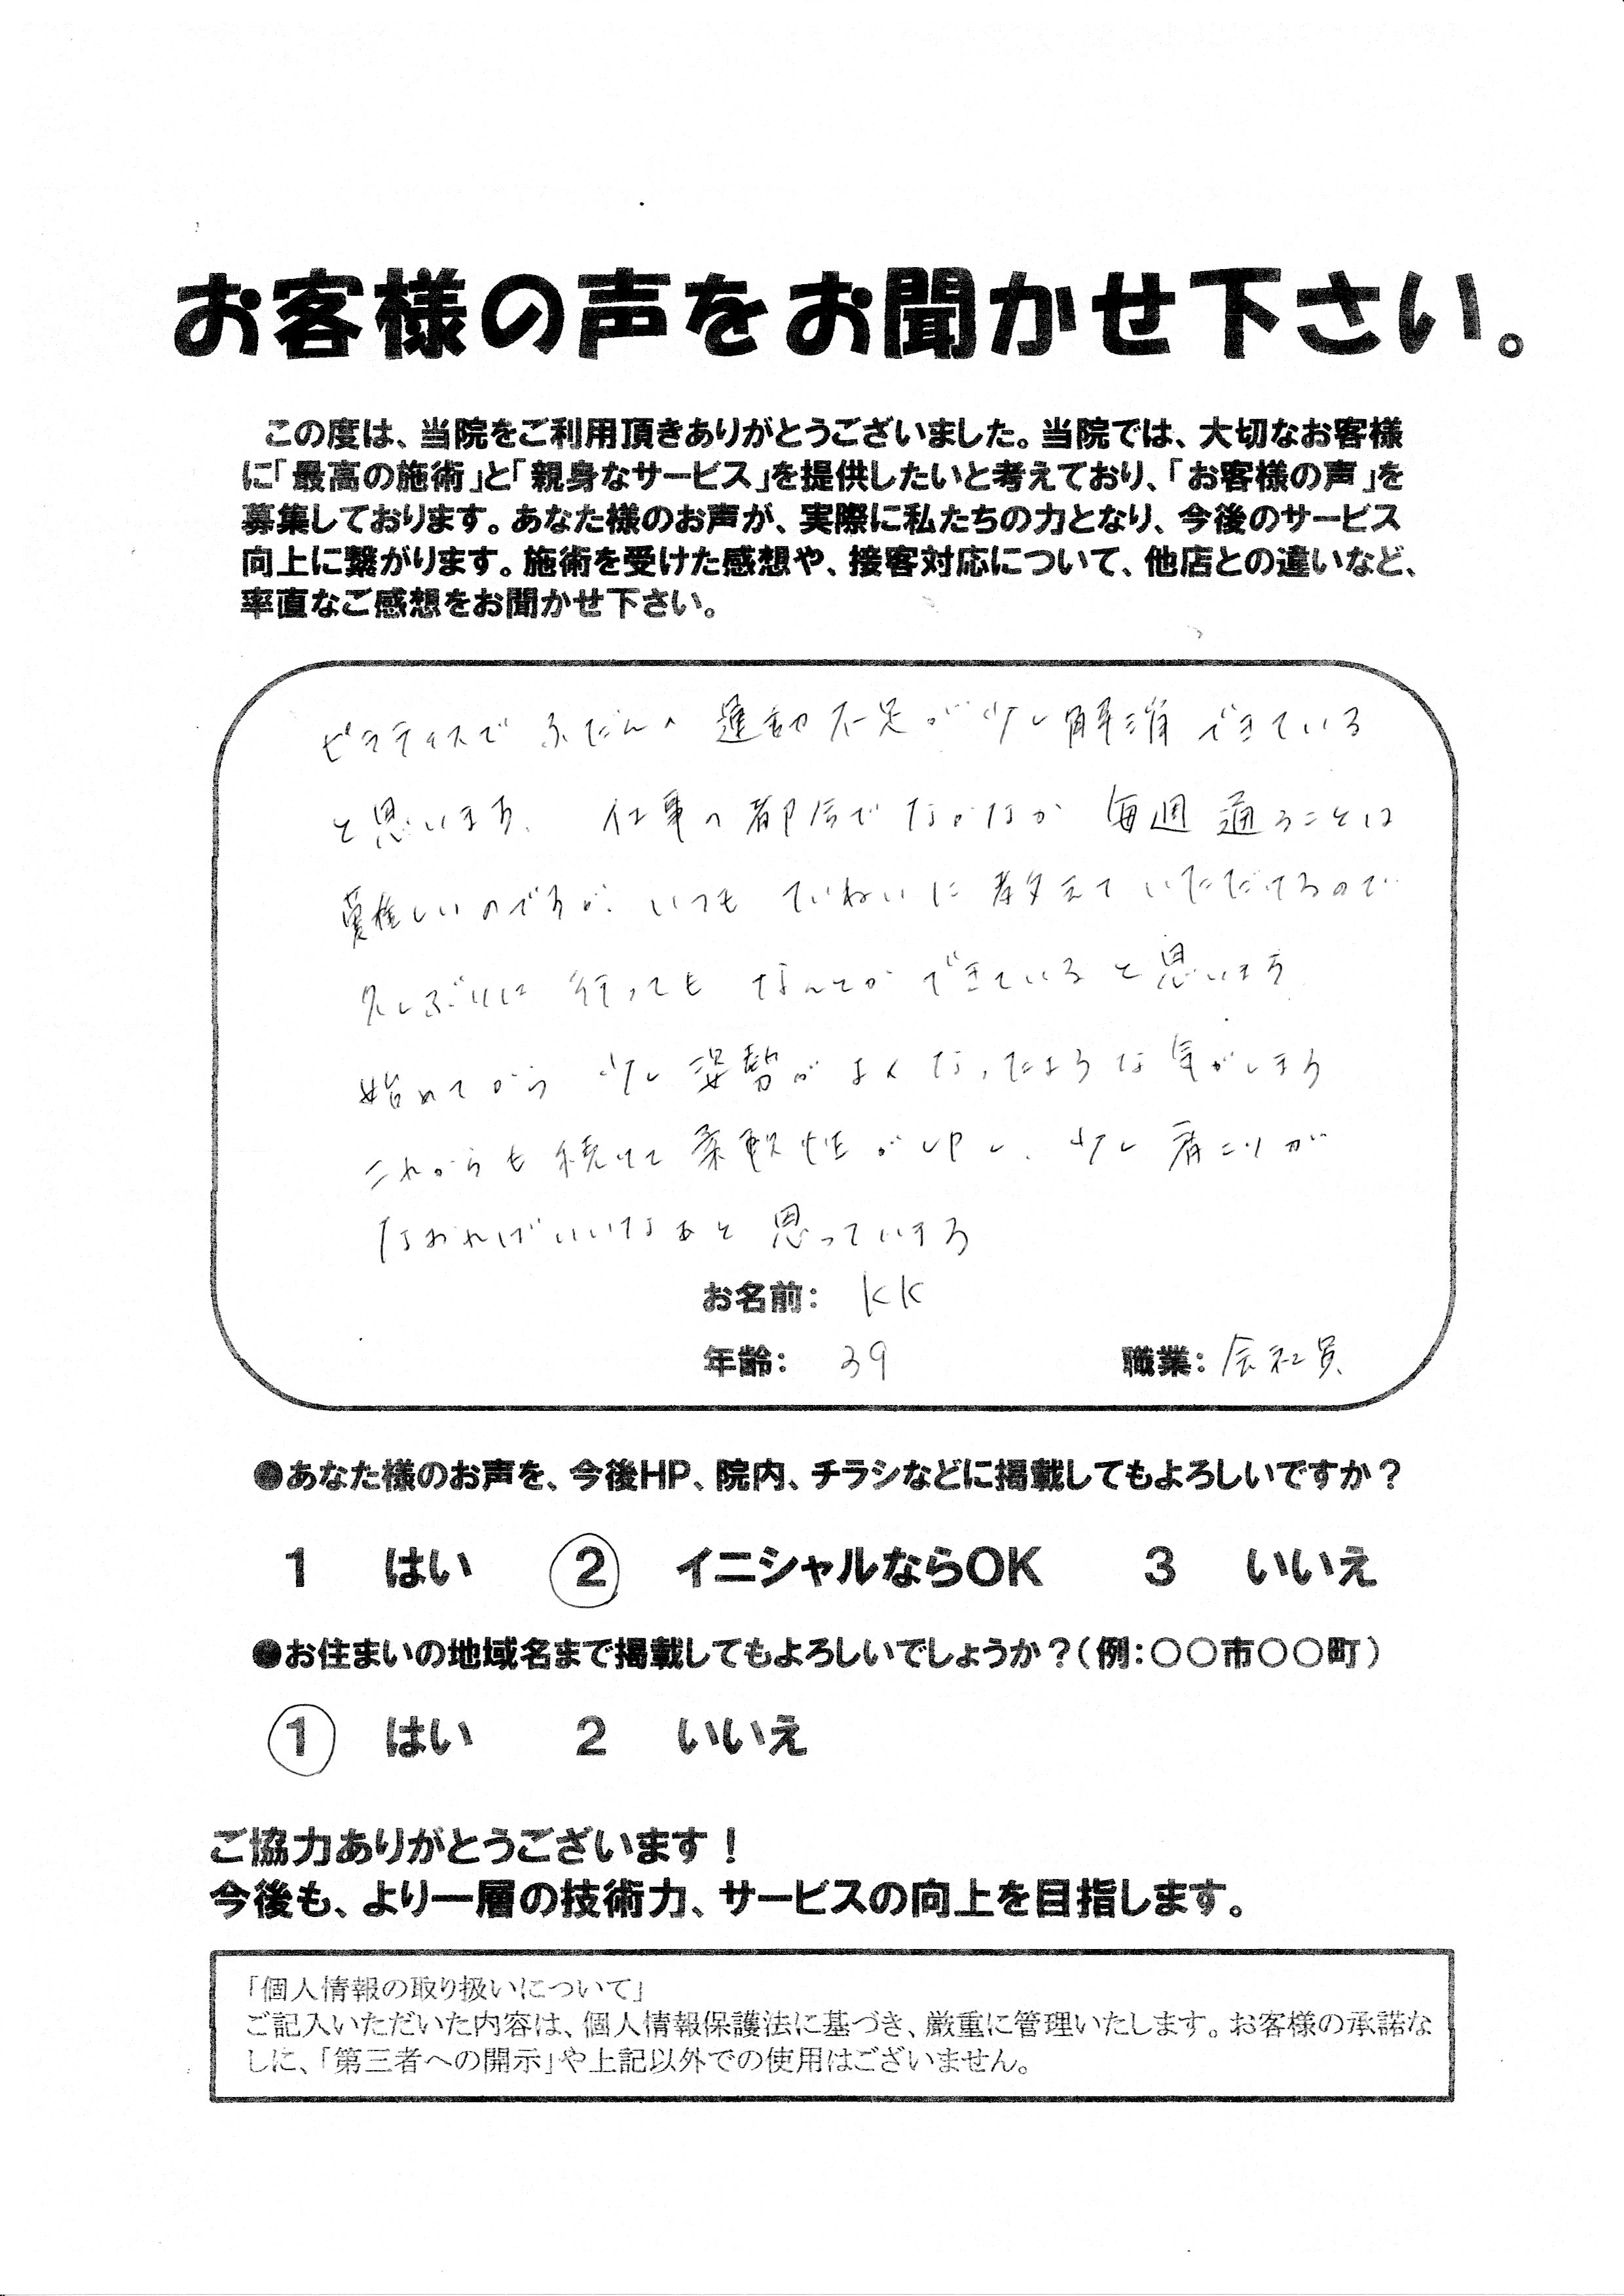 お客様の声をお聞かせ下さい。
この度は、当院をご利用頂きありがとうございました。当院では、大切なお客様
に「最高の施術」と「親身なサービス」を提供したいと考えており、「お客様の声」を
募集しております。あなた様のお声が、実際に私たちの力となり、今後のサービス
向上に繋がります。施術を受けた感想や、接客対応について、他店との違いなど、
率直なご感想をお聞かせ下さい。
ピラティスで ふだんの 運動不足が少し解消できている
と思います。 仕事の都合で なかなか 毎週 通うことは
難しいのですが、いつも ていねいに 教えて いただけるので
久しぶりに 行っても なんとか できていると思います
始めてから 少し 姿勢が よくなったような気がします
これからも続けて 柔軟性がUPし、少し 肩こりが
なおればいいなぁと 思っています
お名前: KK
年齢: 39 職業: 会社員
●あなた様のお声を、今後HP、院内、チラシなどに掲載してもよろしいですか？
1 はい 2 イニシャルならOK 3 いいえ
●お住まいの地域名まで掲載してもよろしいでしょうか？（例：〇〇市〇〇町）
1 はい 2 いいえ
ご協力ありがとうございます！
今後も、より一層の技術力、サービスの向上を目指します。
「個人情報の取り扱いについて」
ご記入いただいた内容は、個人情報保護法に基づき、厳重に管理いたします。お客様の承諾な
しに、「第三者への開示」や上記以外での使用はございません。